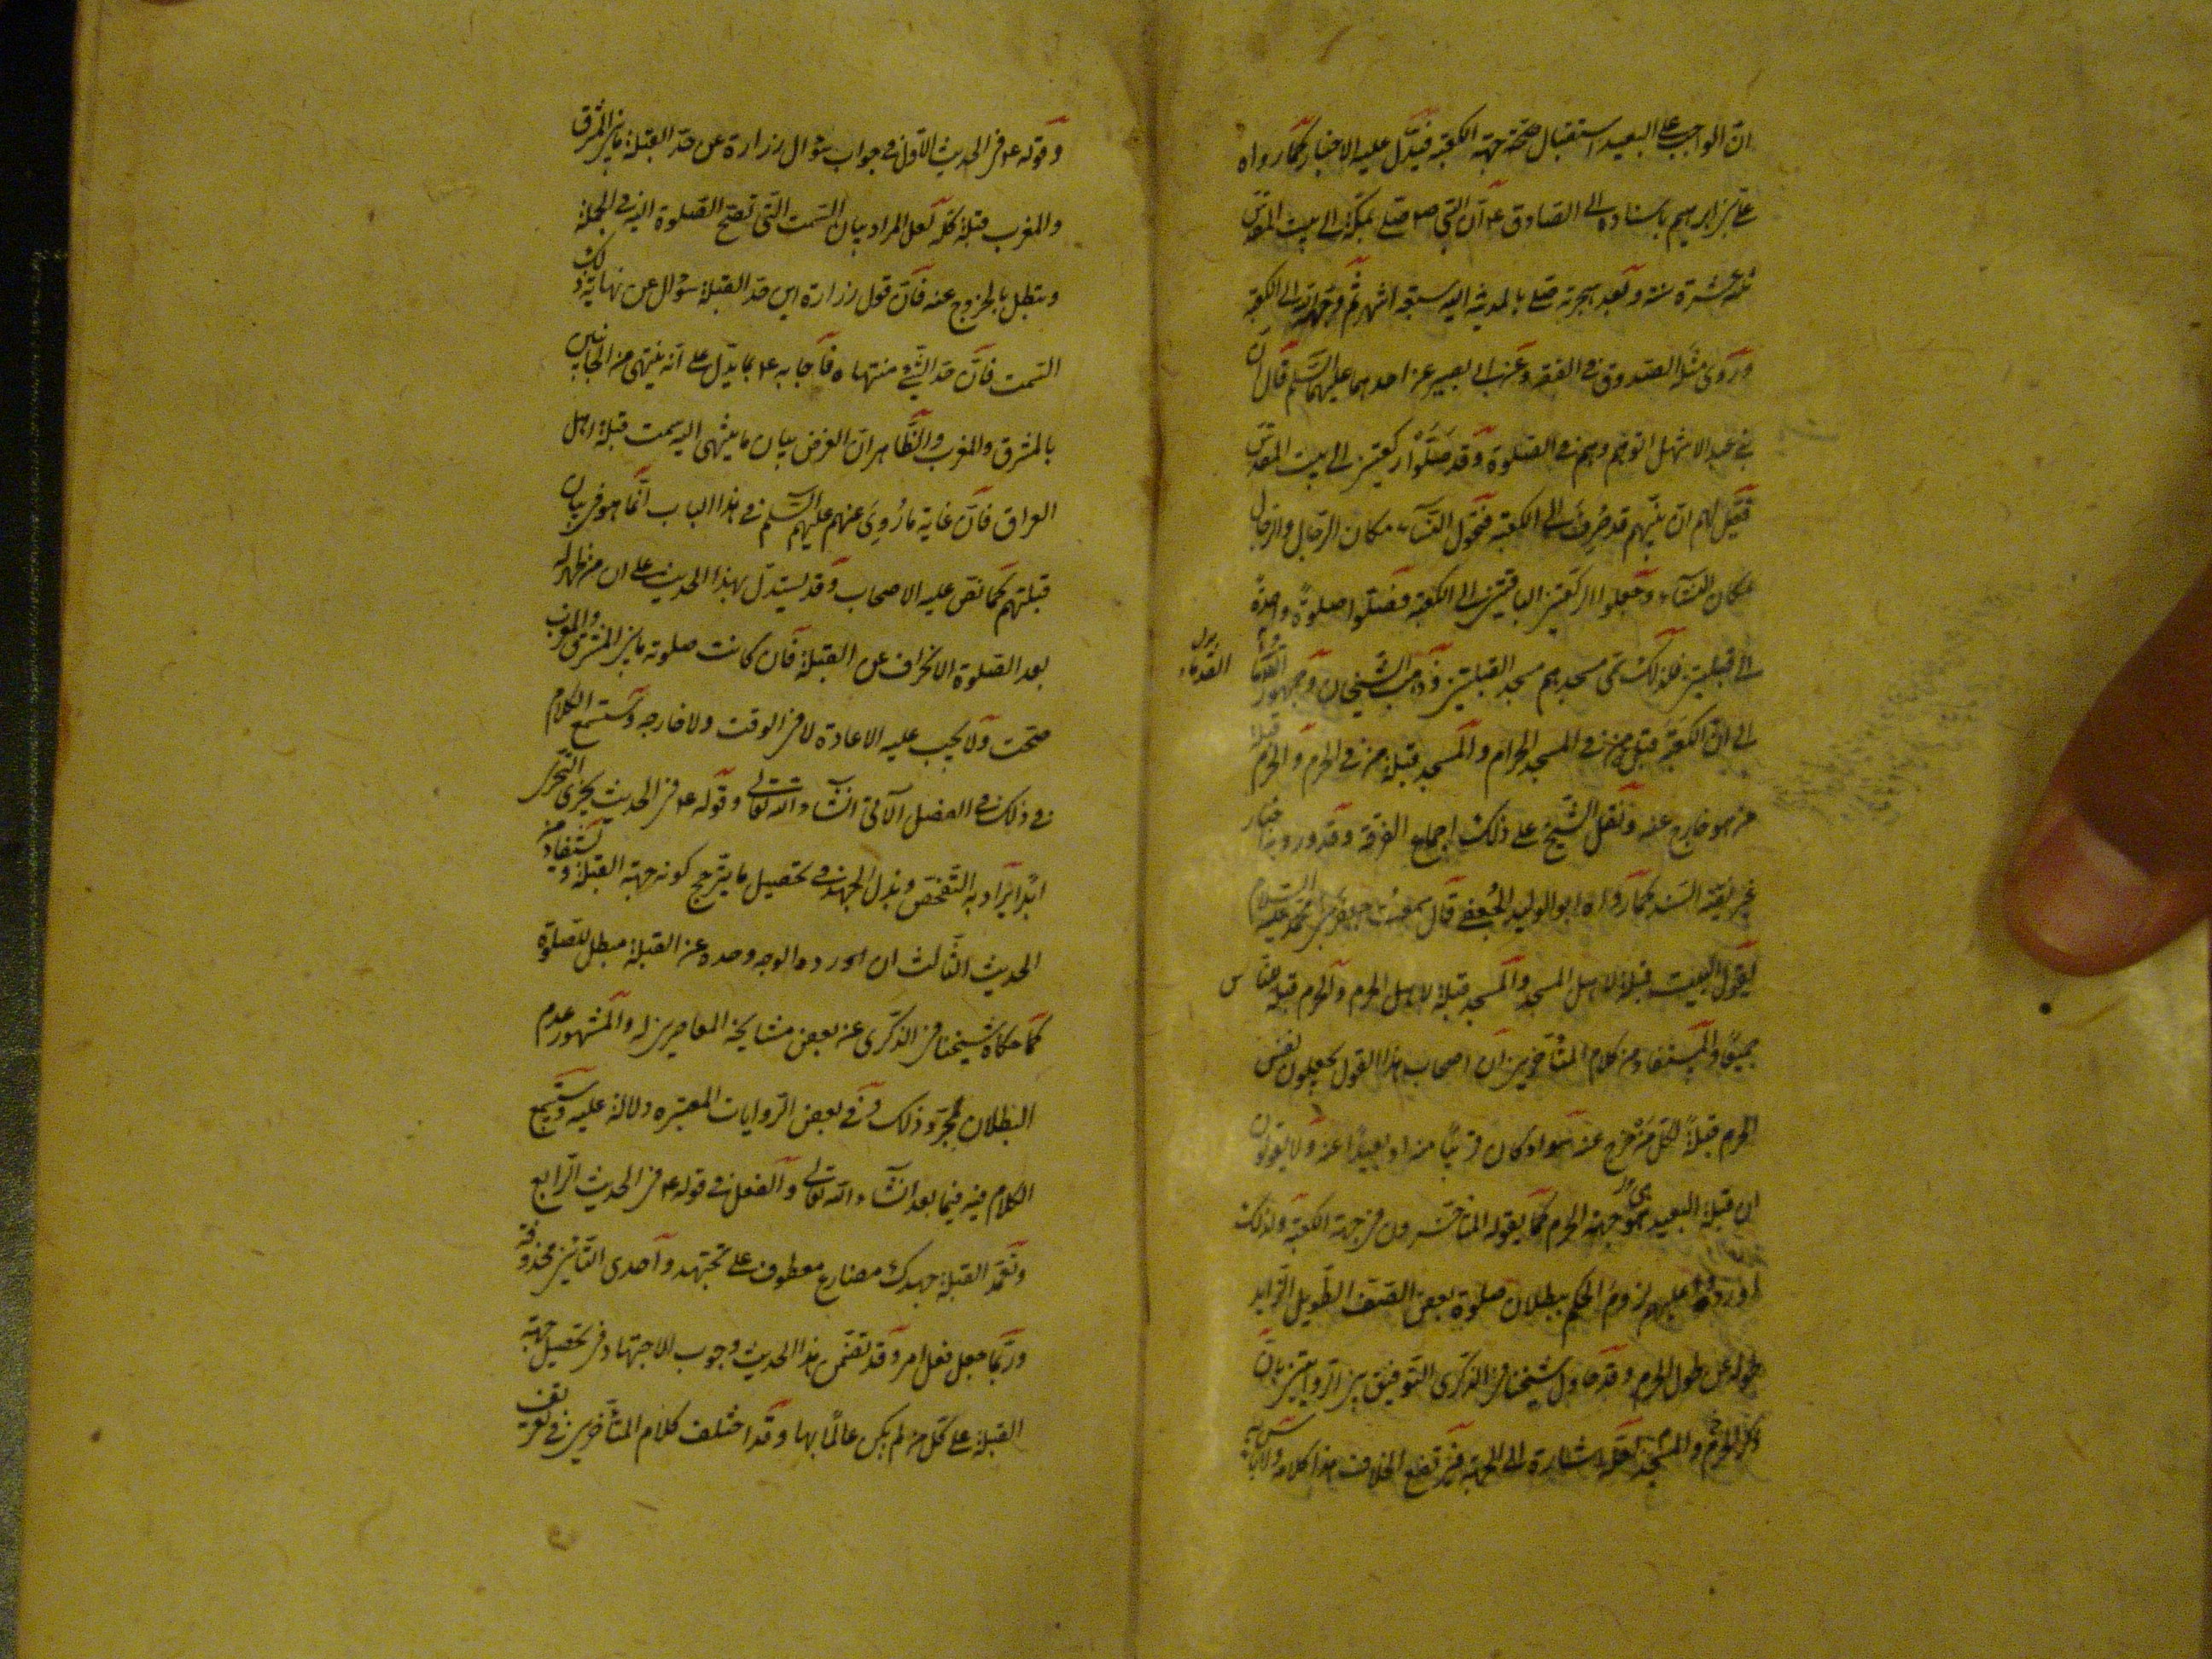 ان الواجب على البعيد استقبال جهة الكعبة فيدل عليه الاخبار كما رواه
علي بن ابرهيم باسناده الى الصادق ع ان النبي ص صلى بمكة الى بيت المقدس
ثلث عشرة سنة وبعد هجرته صلى بالمدينة اليه سبعة اشهر ثم وجهه الله الى الكعبة
وروى مثله الصدوق في الفقيه وعن ابي بصير عن احدهما عليهما السلم قال ان
بني عبد الاشهل اتوهم وهم في الصلوة وقد صلوا ركعتين الى بيت المقدس
فقيل لهم ان نبيكم قد صرف الى الكعبة فتحول النساء مكان الرجال والرجال
مكان النساء وجعلوا الركعتين الباقيتين الى الكعبة فصلوا صلوة واحدة
الى قبلتين فلذلك سمى مسجدهم مسجد القبلتين وذهب الشيخان وجمهور القدماء
الى ان الكعبة قبلة من في المسجد الحرام والمسجد قبلة من في الحرم والحرم قبلة
من هو خارج عنه ونقل الشيخ على ذلك اجماع الفرقة وقد ورد به اخبار
غير نقية السند كما رواه ابو الوليد الجعفي قال سمعت جعفر بن محمد عليه السلام
يقول البيت قبلة لاهل المسجد والمسجد قبلة لاهل الحرم والحرم قبلة للناس
جميعا والمستفاد من كلام المتاخرين ان اصحاب هذا القول يجعلون نفس
الحرم قبلة لكل من خرج عنه سواء كان قريبا منه او بعيدا عنه ولا يقولون
ان قبلة البعيد هي جهة الحرم كما يقوله المتاخرون في جهة الكعبة ولذلك
اوردوا عليهم لزوم الحكم ببطلان صلوة بعض الصف الطويل الزايد
طوله عن طول الحرم وقد حاول شيخنا في الذكرى التوفيق بين الروايتين بان
ذكر الحرم والمسجد لعله اشارة الى الجهة فيرتفع الخلاف هذا كلامه ولا باس به
وقوله ع في الحديث الاول في جواب سؤال زرارة عن حد القبلة ما بين المشرق
والمغرب قبلة كله لعل المراد بيان السمت التي تصح الصلوة اليه في الجملة
وتبطل بالخروج عنه فان قول زرارة اين حد القبلة سؤال عن نهاية ذلك
السمت فان حد الشي منتهاه فاجابه ع بما يدل على انه ينتهي من الجانبين
بالمشرق والمغرب والظاهر ان الغرض بيان ما ينتهى اليه سمت قبلة اهل
العراق فان غاية ما روي عنهم عليهم السلم في هذا الباب انما هو في بيان
قبلتهم كما نص عليه الاصحاب وقد يستدل بهذا الحديث على ان من ظهر له
بعد الصلوة الانحراف عن القبلة فان كانت صلوته ما بين المشرق والمغرب
صحت ولا يجب عليه الاعادة لا في الوقت ولا خارجه وستسمع الكلام
في ذلك في الفصل الآتي انشاء الله تعالى وقوله ع في الحديث يجزى التحري
ابدا يراد به التفحص وبذل الجهد في تحصيل ما يترجح كونه جهة القبلة ويستفاد من
الحديث الثالث ان الوجه وحده عن القبلة مبطل للصلوة
كما حكاه شيخنا في الذكرى عن بعض مشايخه المعاصرين له والمشهور عدم
البطلان بمجرد ذلك وفي بعض الروايات المعتبرة دلالة عليه وستسمع
الكلام فيه فيما بعد انشاء الله تعالى والفعل في قوله ع في الحديث الرابع
وتعمد القبلة جهدك مضارع معطوف على تجتهد واحدى التائين محذوفة
وربما جعل فعل امر وقد تضمن هذا الحديث وجوب الاجتهاد في تحصيل جهة
القبلة على كل من لم يكن عالما بها وقد اختلف كلام المتأخرين في تعريف